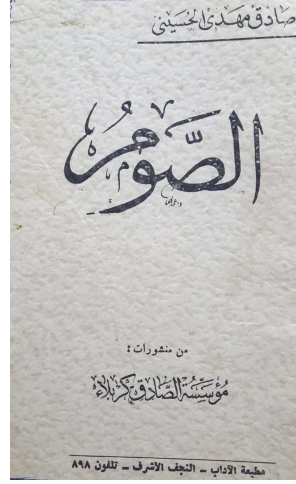 صادق مهدي الحسيني
الصَّومُ
من منشورات:
مؤسسة الصادق كربلاء
مطبعة الآداب ــ النجف الأشرف ــ تلفون ٨٩٨